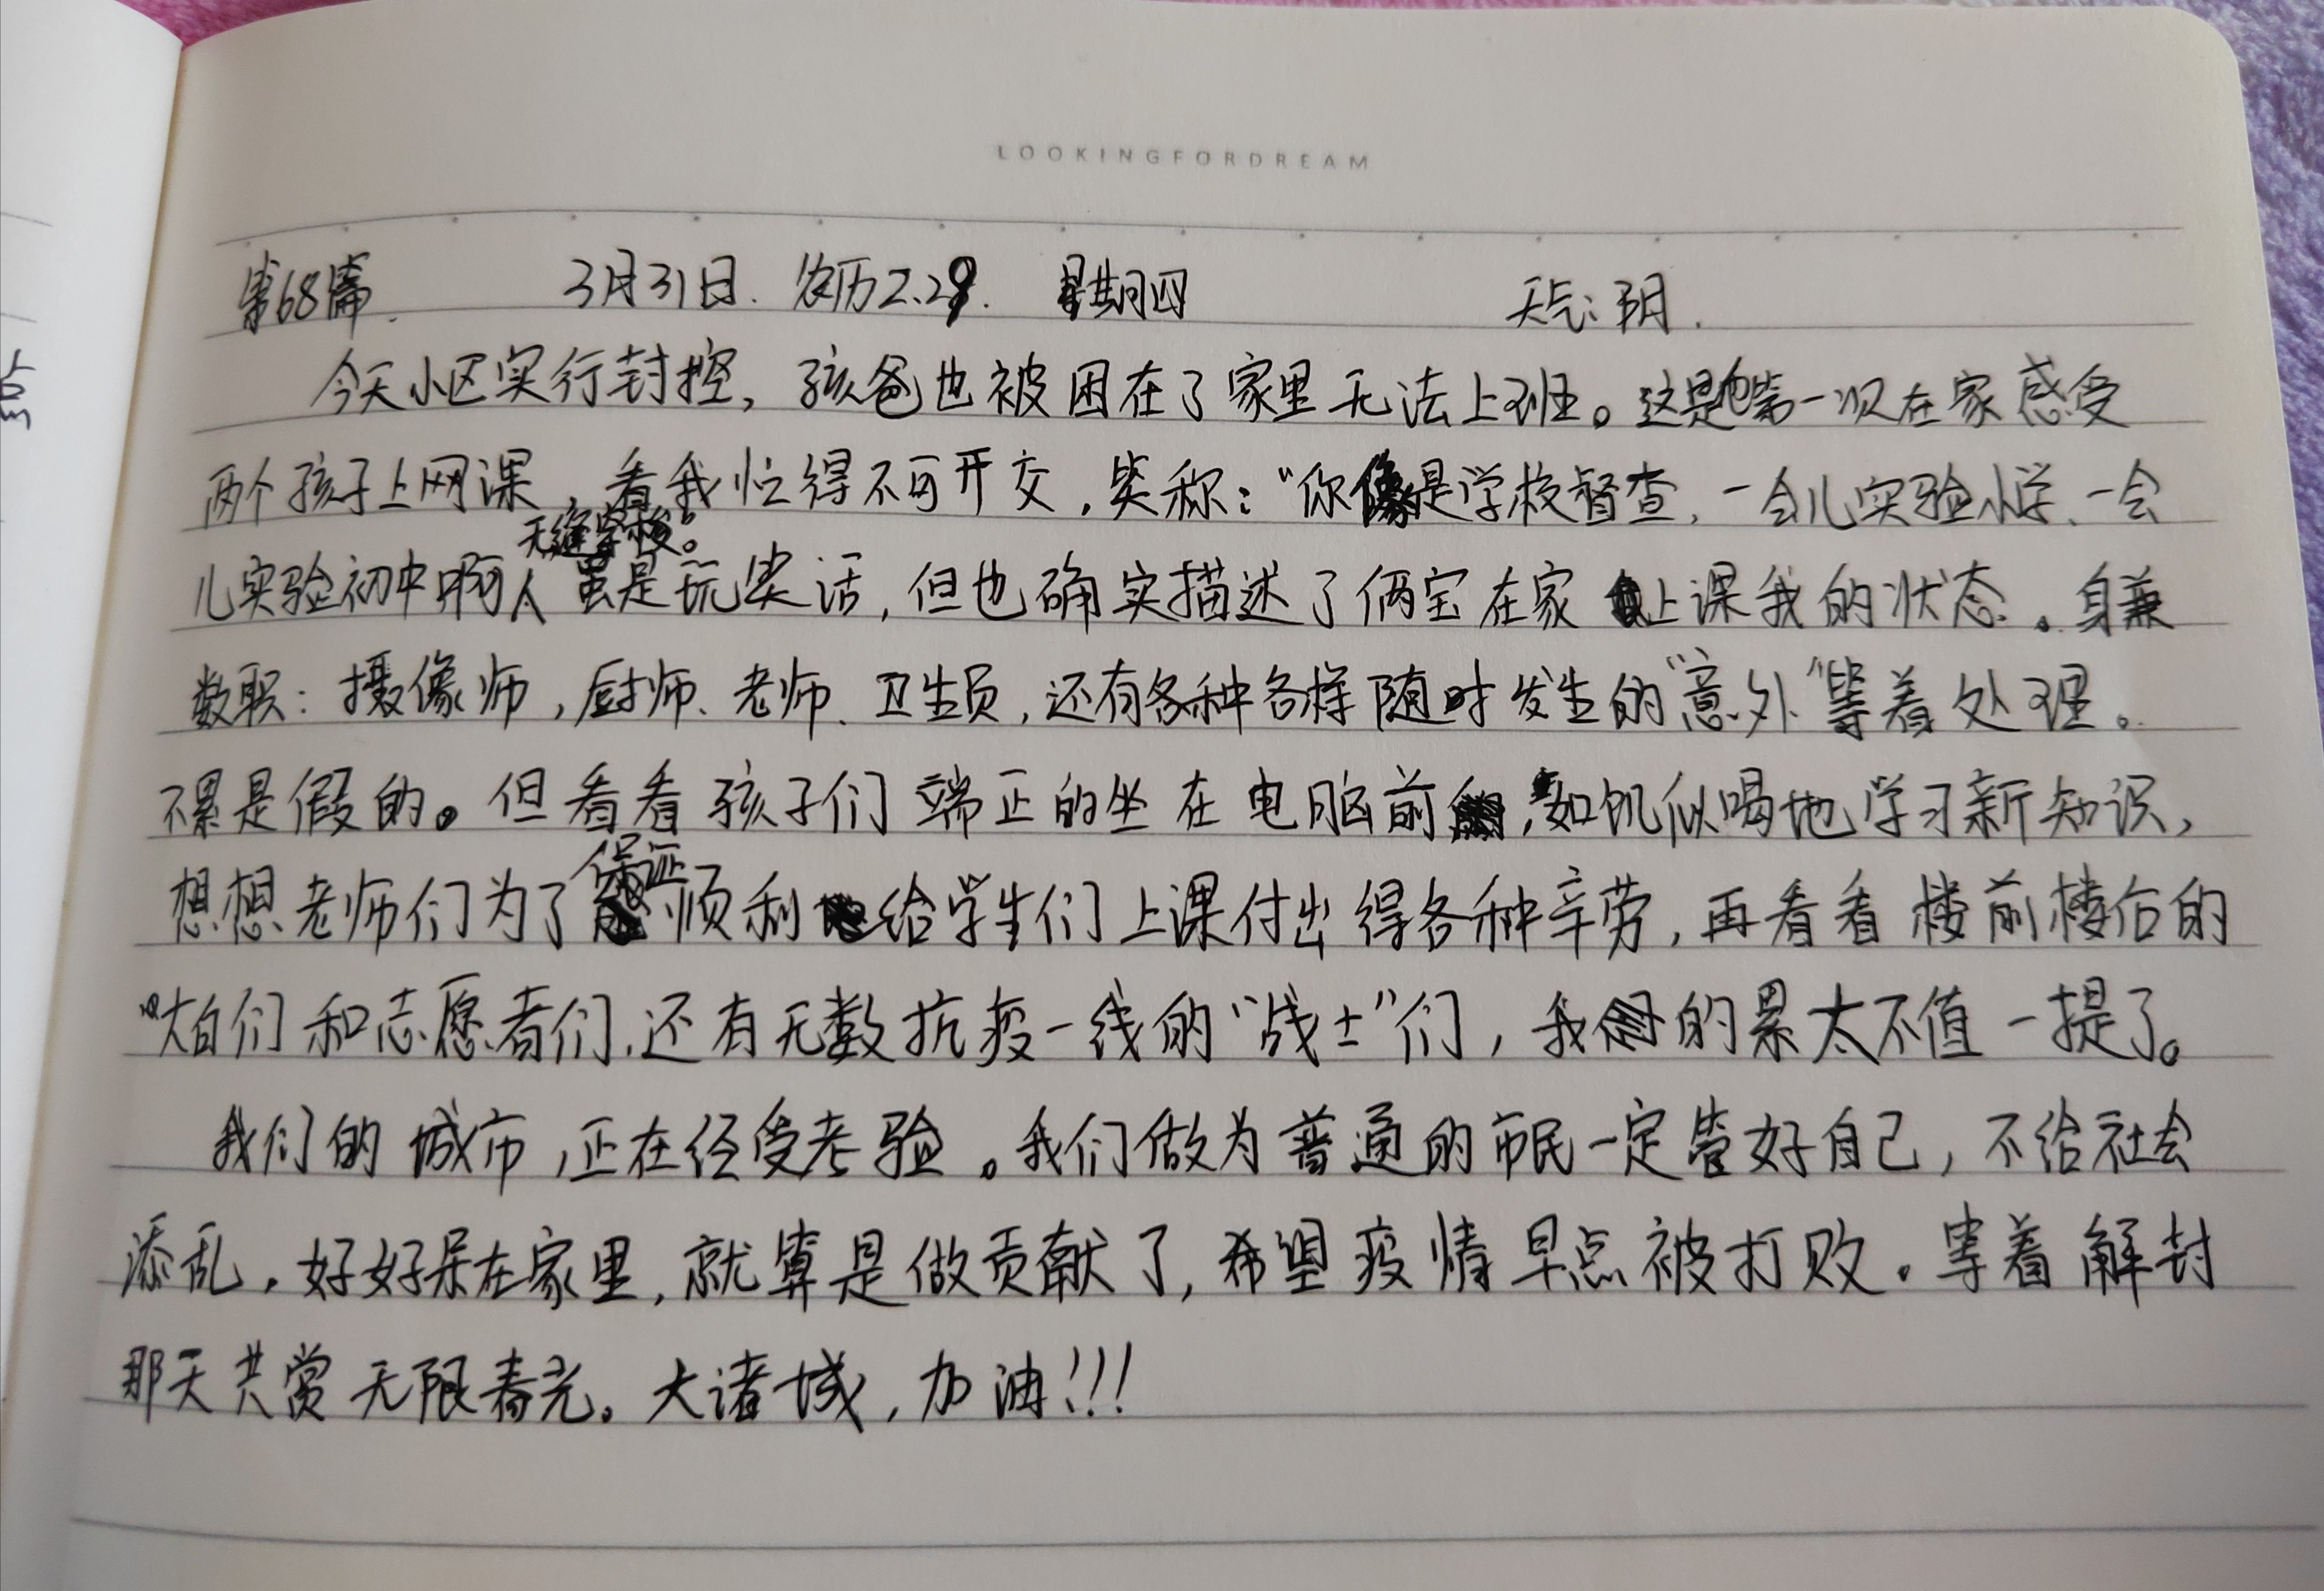 LOOKINGFORDREAM
第68篇. 3月31日. 农历2.29. 星期四 天气:阴.
今天小区实行封控,孩爸也被困在了家里无法上班。这是他第一次在家感受
两个孩子上网课,看我忙得不可开交,笑称:“你像是学校督查,一会儿实验小学、一会
无缝学校。
儿实验初中啊 虽是玩笑话,但也确实描述了俩宝在家上课我的状态。身兼
数职:摄像师,厨师、老师、卫生员,还有各种各样随时发生的“意外”等着处理。
不累是假的。但看看孩子们端正的坐在电脑前,如饥似喝地学习新知识,
保证
想想老师们为了顺利给学生们上课付出得各种辛劳,再看看楼前楼后的
“大白们和志愿者们,还有无数抗疫一线的“战士”们,我的累太不值一提了。
我们的城市,正在经受考验。我们做为普通的市民一定管好自己,不给社会
添乱,好好呆在家里,就算是做贡献了,希望疫情早点被打败。等着解封
那天共赏无限春光。大诸城,加油!!!